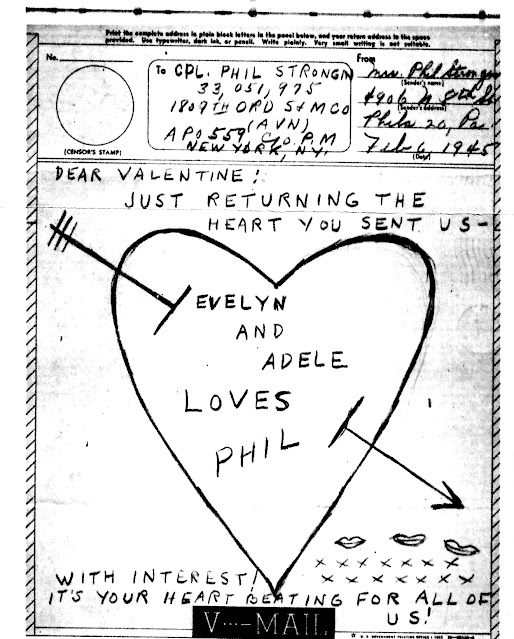 Print the complete address in plain block letters in the panel below, and your return address in the space
provided. Use typewriter, dark ink, or pencil. Write plainly. Very small writing is not suitable.
No.
(CENSOR'S STAMP)
To CPL. PHIL STRONGIN
33,051,975
1809TH ORD S & M CO
(AVN)
APO 559 C/O P.M
NEW YORK, N.Y.
From
Mrs. Phil Strongin
(Sender's name)
4906 N 8th St
(Sender's address)
Phila 20, Pa.
Feb 6, 1945
(Date)
DEAR VALENTINE!
JUST RETURNING THE
HEART YOU SENT US-
EVELYN
AND
ADELE
LOVES
PHIL
x x x x x x x
x x x x x x x
WITH INTEREST!
IT'S YOUR HEART BEATING FOR ALL OF
US!
V···-MAIL
U. S. GOVERNMENT PRINTING OFFICE